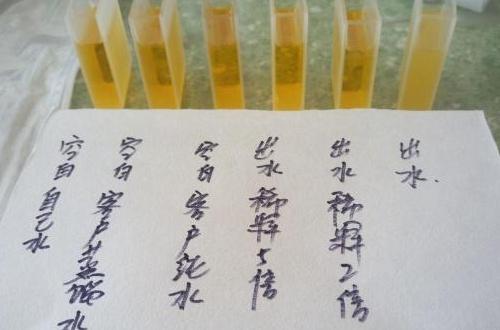 空白 自己水
空白 客户蒸馏水
空白 客户纯水
出水 稀释5倍
出水 稀释2倍
出水.